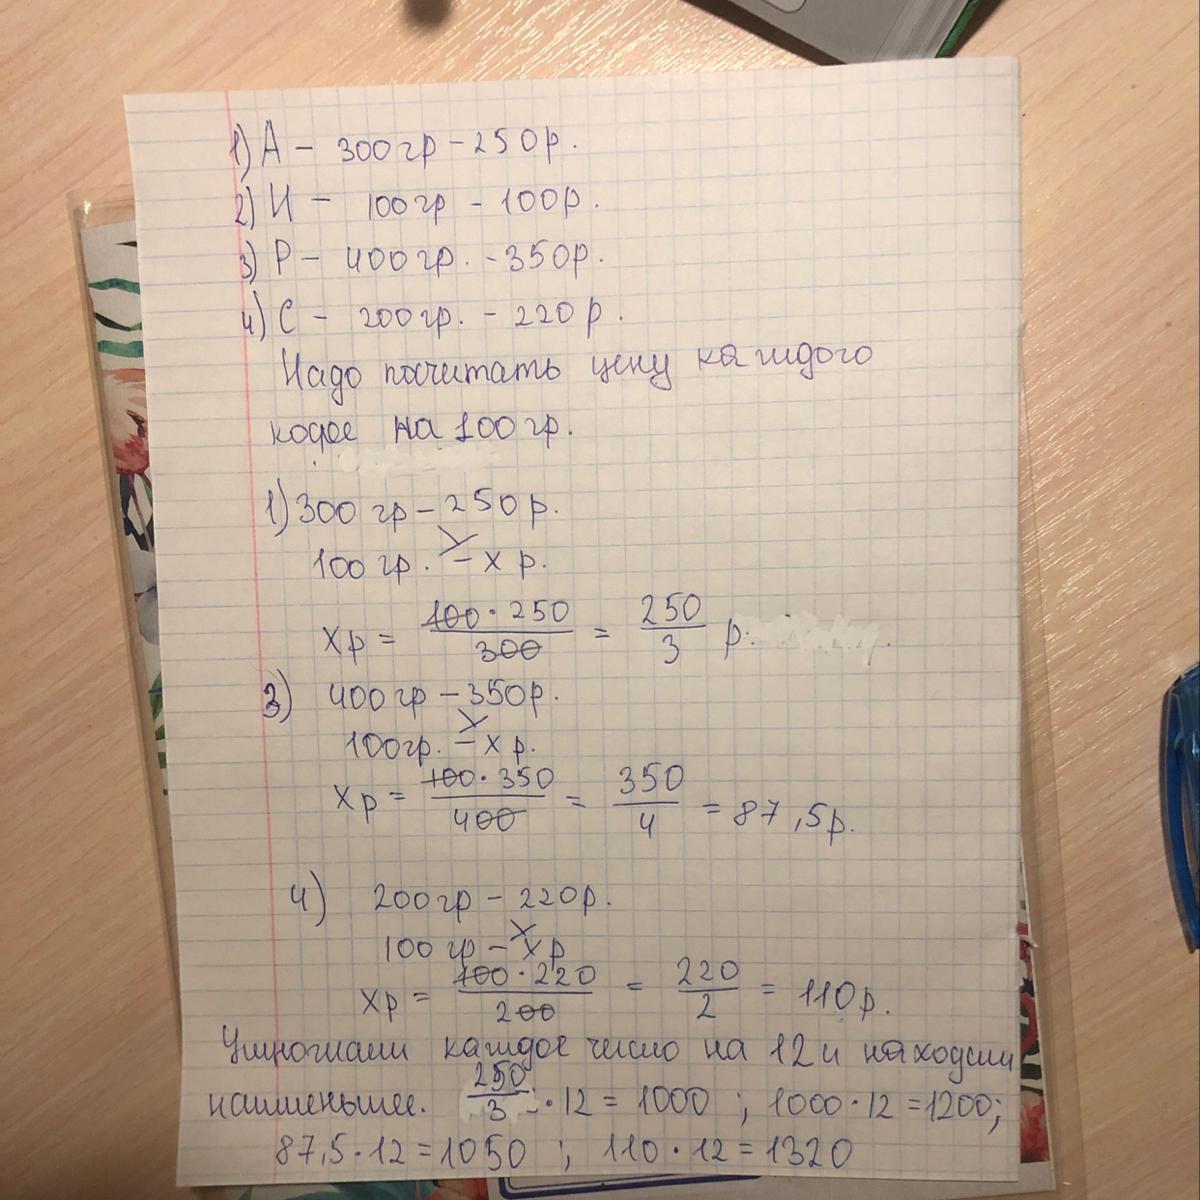 1) А – 300 гр – 250 р.
2) И – 100 гр – 100 р.
3) Р – 400 гр. – 350 р.
4) С – 200 гр. – 220 р.
Надо посчитать цену каждого
кофе на 100 гр.
1) 300 гр – 250 р.
100 гр. – х р.
хр = 100 · 250 / 300 = 250 / 3 р.
3) 400 гр – 350 р.
100 гр. – х р.
хр = 100 · 350 / 400 = 350 / 4 = 87,5 р.
4) 200 гр – 220 р.
100 гр – х р
хр = 100 · 220 / 200 = 220 / 2 = 110 р.
Умножаем каждое число на 12 и находим
наименьшее. 250 / 3 · 12 = 1000 ; 1000 · 12 = 1200;
87,5 · 12 = 1050 ; 110 · 12 = 1320